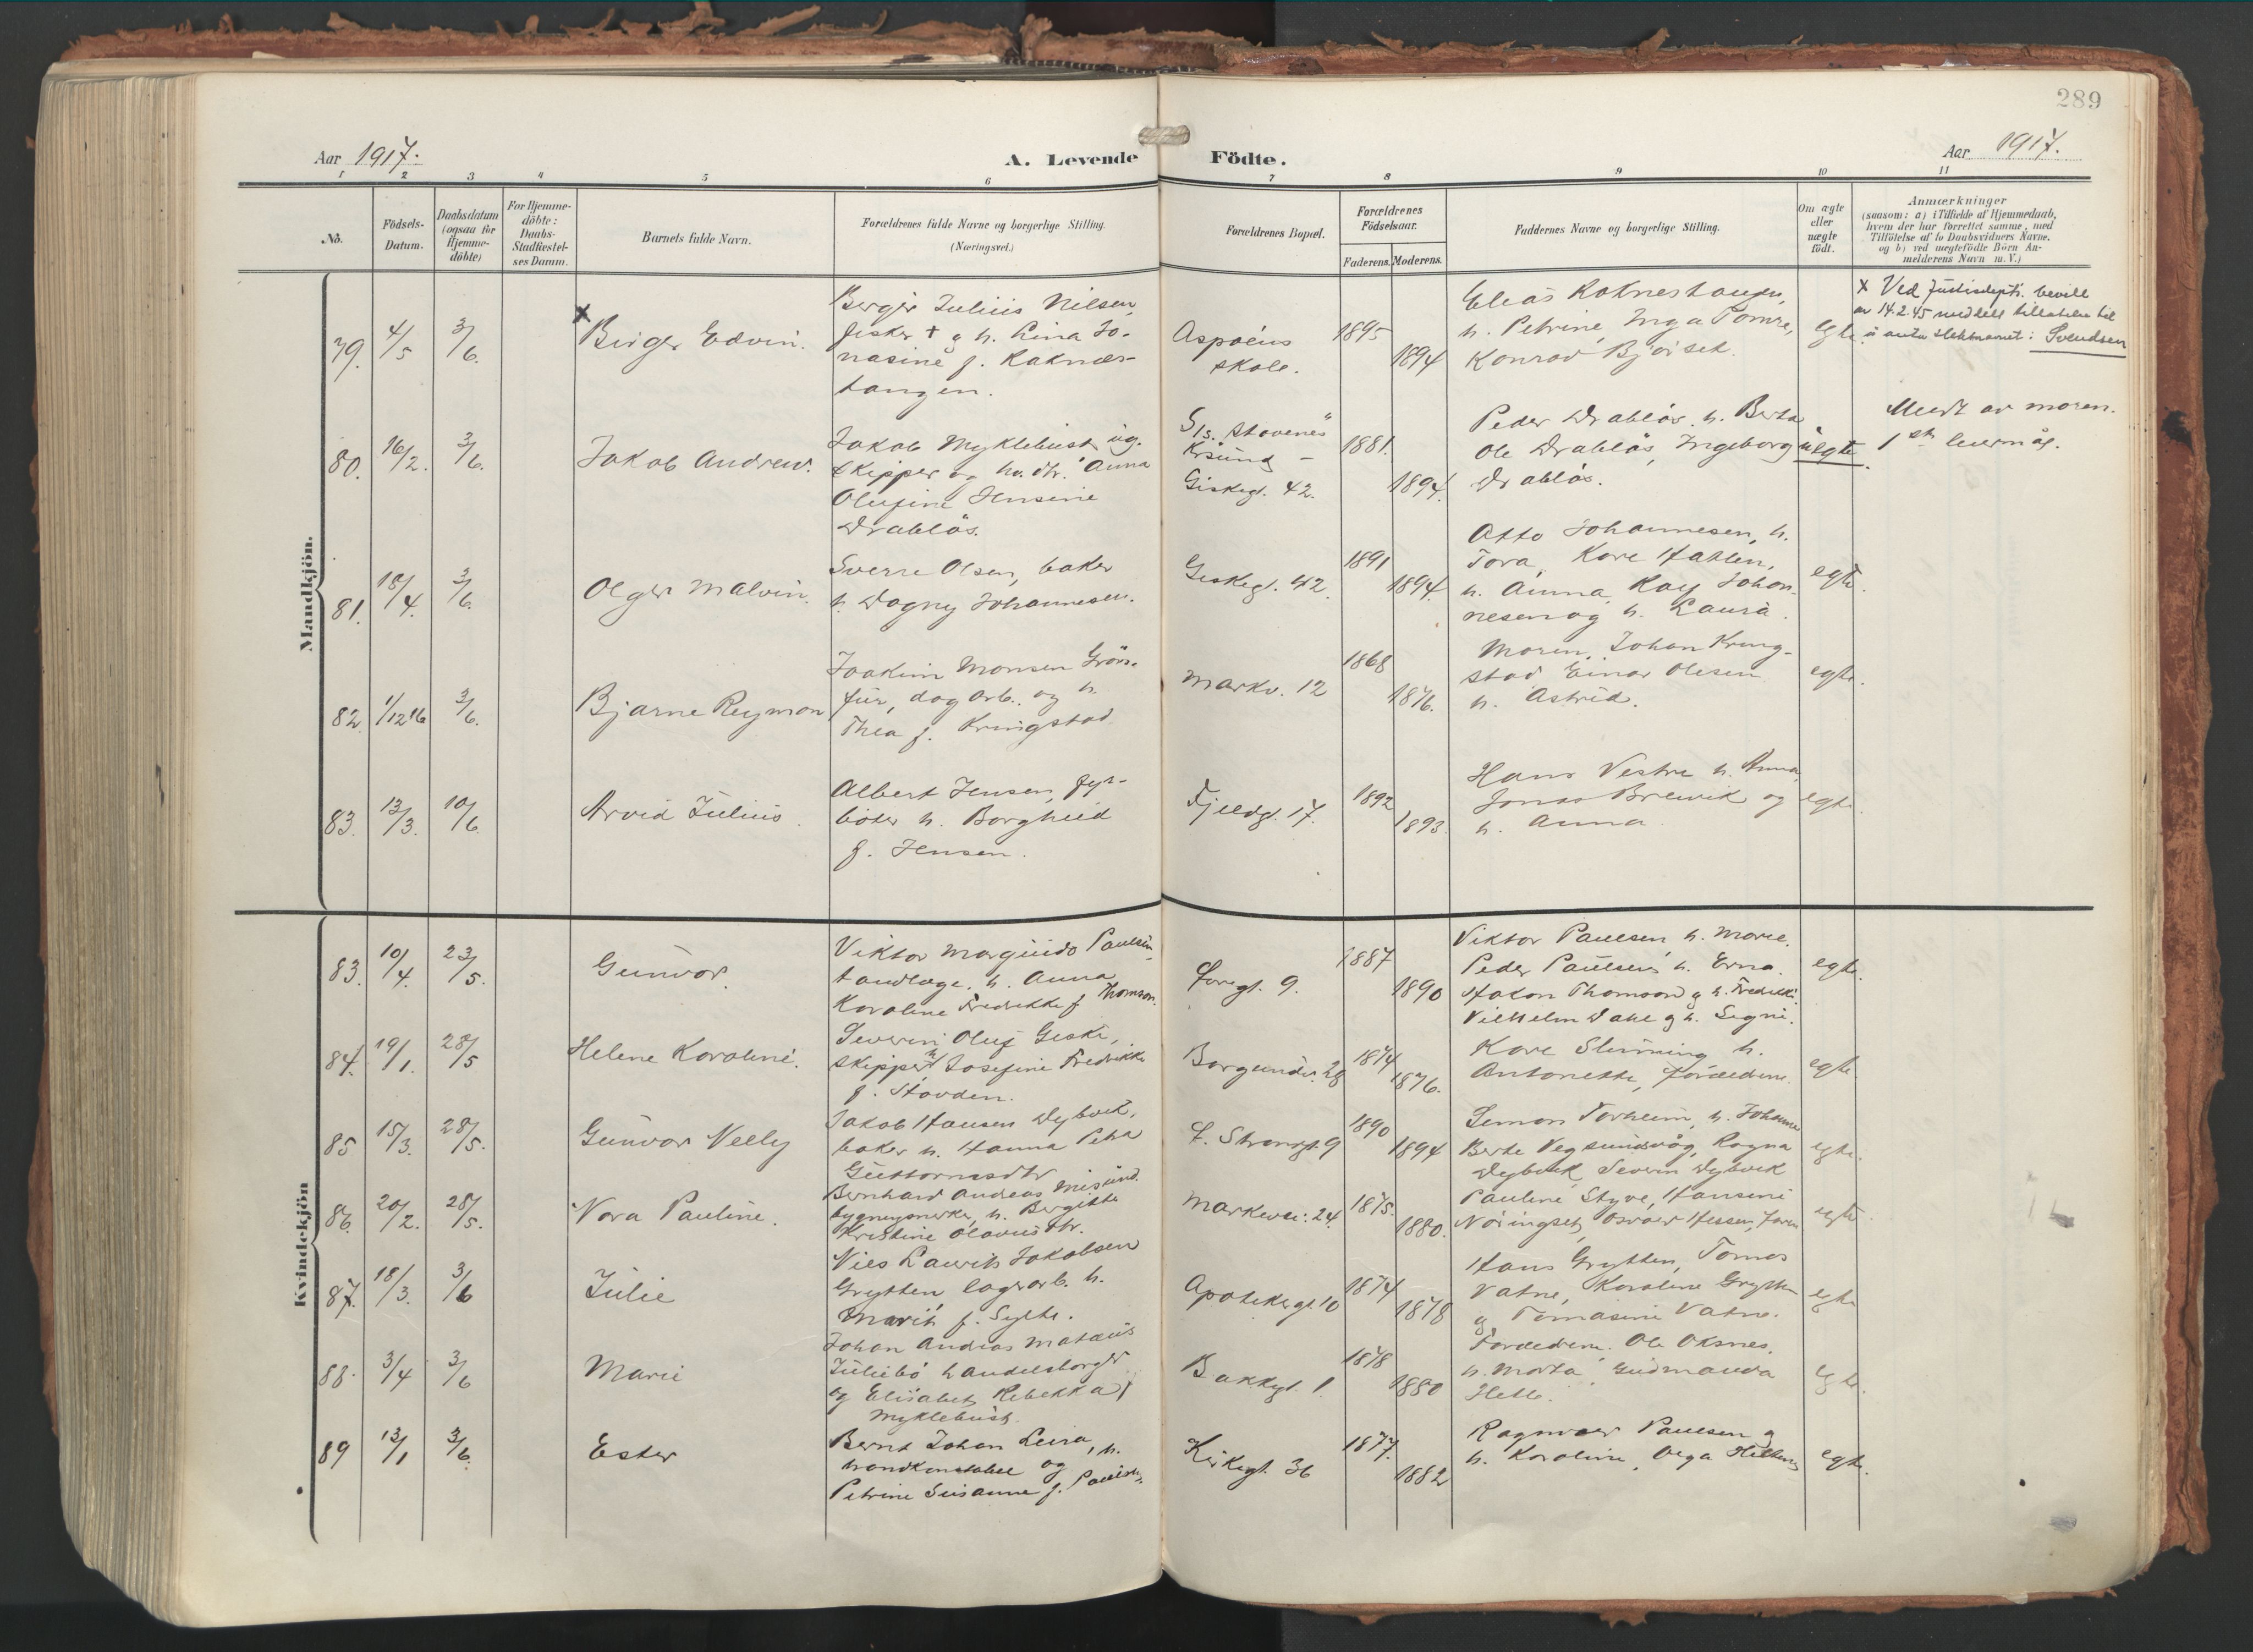 289
Aar 1917.
A. Levende Födte.
Aar 1917.
1 2 3 4 5 6 7 8 9 10 11
No.
Födsels-
Datum.
Daabsdatum
(ogsaa for
Hjemme-
döbte)
For Hjemme-
döbte:
Daabs-
Stadfæstel-
ses Datum.
Barnets fulde Navn.
Forældrenes fulde Navne og borgerlige Stilling.
(Næringsvei.)
Forældrenes Bopæl.
Forældrenes
Födselsaar.
Faderens. Moderens.
Faddernes Navne og borgerlige Stilling.
Om ægte
eller
uægte
født.
Anmærkninger
(saasom: a) i Tilfælde af Hjemmedaab,
hvem der har forrettet samme, med
Tilföielse af to Daabsvidners Navne,
og b) ved uægtefödte Börn An-
melderens Navn m. V.)
Mandkjön.
79. 4/5 3/6.
x
Birger Edvin.
Berger Julius Nilsen,
fisker + g h. Lina Jo-
nasine f. Raknes-
tangen.
Aspøens
skole.
1895
1894
Elias Raknestangen,
h. Petrine, Inga Tomre,
Konrad Bjørset.
egte.
x Ved Justisdept's. bevill
av 14.2.45 meddelt tillatelse til
å anta slektnavnet: Svendsen
80. 16/2. 3/6.
Jakob Andreas.
Jakob Myklebust ug.
skipper og hv. dtr. Anna
Olufine Jensine
Drabløs.
S/s. "Stavenes"
Krsund -
Giskegt. 42.
1881.
1894.
Peder Drabløs, h. Berta
Ole Drabløs, Ingeborg
Drabløs.
uegte.
Meldt av moren.
1ste leiermål.
81. 18/4. 3/6.
Olger Malvin.
Sverre Olsen, baker
h. Dagny Johannesen.
Giskegt. 42.
1891
1894.
Otto Johannesen, h.
Tora, Kare Hatlen,
h. Anna, Kay Johan-
nesen og h. Laura.
egte.
82. 1/12 16 3/6.
Bjarne Reymon
Joakim Monsen Grøn-
fur, dagarb. og h.
Thea f. Kringstad
Markv. 12
1868
1876.
Moren, Johan Kring-
stad Einar Olesen
h. Astrid.
egte.
83. 13/3. 10/6
Arvid Julius.
Albert Jensen, fyr-
bøter h. Borghild
f. Jensen.
Fjeldgt. 17.
1892
1893.
Hans Vestre h. Anna,
Jonas Breivik og
h. Anna
egte.
Kvindekjön
83. 10/4. 23/5.
Gunvor.
Viktor Margindo Paulsen,
tandlæge. h. Anna
Karoline Fredrikke f Thomson.
1887
1890
Viktor Paulsen, h. Marie.
Peder Paulsen, h. Erna.
Hakon Thomson g h. Fredrikke.
Vilhelm Dahl g h. Signe.
egte.
84. 19/1. 28/5
Helene Karoline.
Severin Oluf Giske,
skipper h. Josefine Fredrikke
f. Stavden.
Borgundv. 28
1874
1876.
Kare Slinning h.
Antonette, forældrene.
egte.
85 15/3. 28/5.
Gunvor Nelly
Jakob Hansen Dybvik,
baker h. Hanna Petra
Guttormsdtr
1890
1894
Simon Torheim, h. Johanne
Berte Vegsundvåg, Ragna
Dybvik Severin Dybvik
egte.
86. 20/2. 28/5.
Nora Pauline.
Bernhard Andreas Misund.
bygningsnerker, h. Bergitte
Kristine Olausdtr.
Markvei: 24.
1875.
1880.
Pauline Styve, Hansine
Nøringset, Osvald Hessen, faren
egte.
87. 18/3. 3/6
Julie
Nils Laurits Jakobsen
Grytten lagerarb. h.
Marit f. Sylte.
Apotekergt. 10
1874
1878
Hans Grytten, Tomas
Vatne, Karoline Grytten
g Tomasine Vatne.
egte
88. 3/4 3/6
Marie
Johan Andreas Mataus
Juliebø handelsborger
og Elisabet Rebekka f
Myklebust.
Bakkegt. 1.
1878
1880
Forældrene. Ole Oksnes,
h. Marta, Gudmunda
Helle.
egte.
89 13/1 3/6.
Ester
Bernt Johan Leira, h.
brandkonstabel og
Petrine Susanne f. Paulsen.
Kirkegt. 36
1877.
1882
Ragnvald Paulsen g
h. Karoline, Olga
egte.